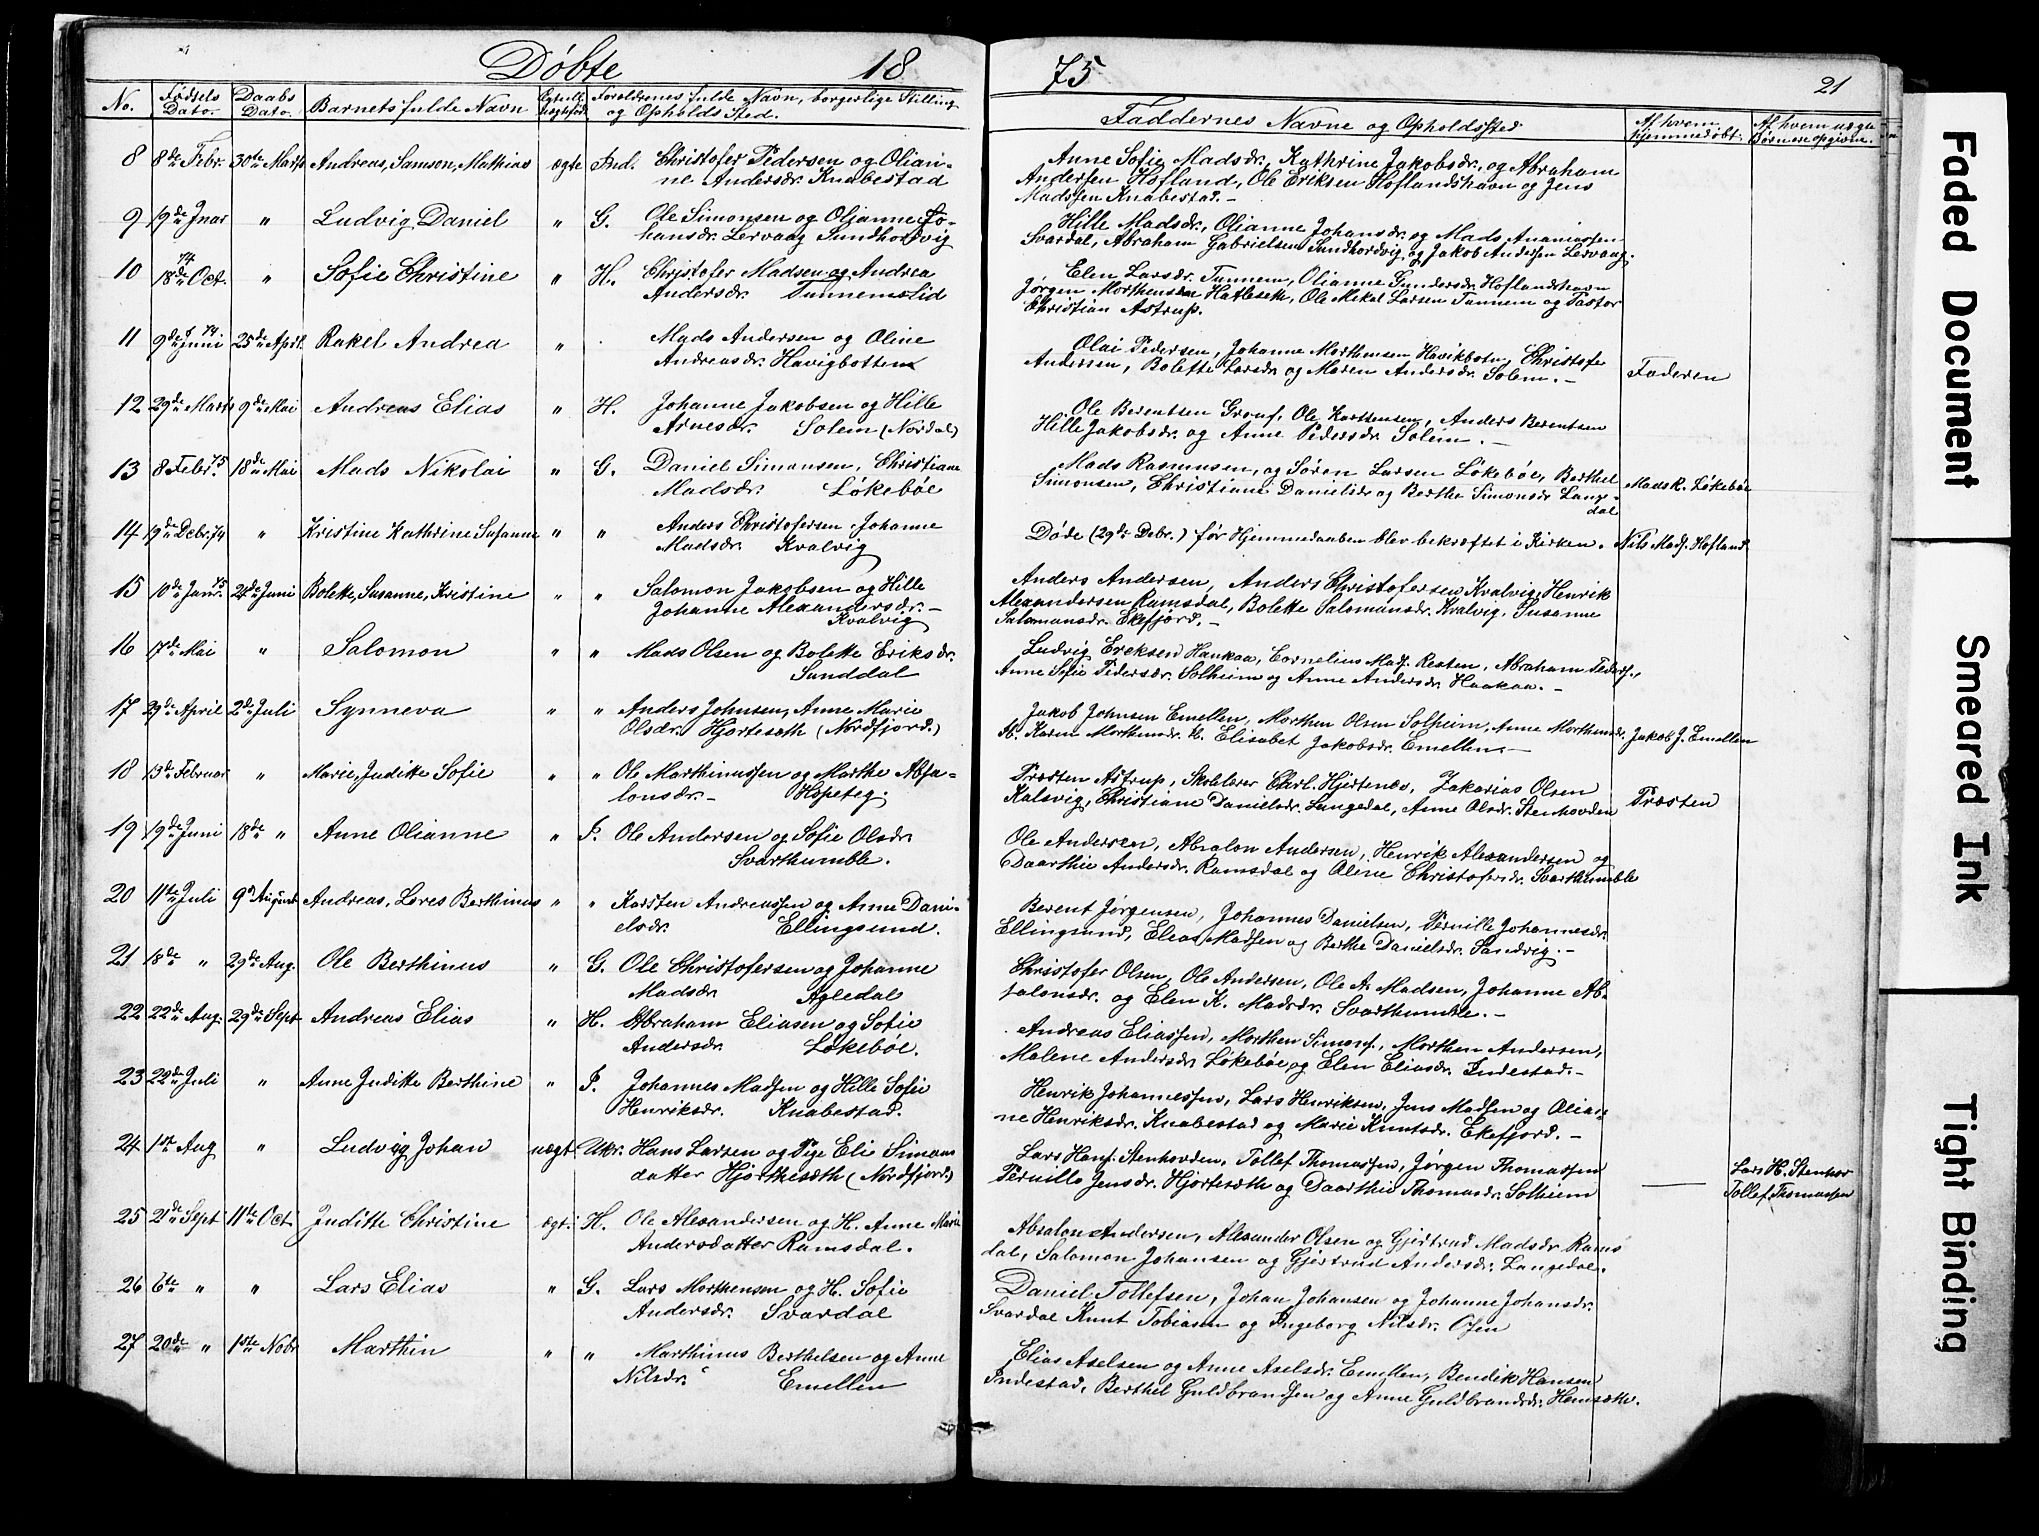 Døbte 18 75 21
No. Fødsels Dato. Daabs Dato. Barnets fulde Navn Forældrenes fulde Navn, borgerlige Stilling og Opholds Sted. Faddernes Navne og Opholdssted Af hvem hjemmedøbt. Af hvem uægte Børn ere opgivne.
8 8de Febr. 30te Marts Andreas, Samson, Mathias ægte Ind. Christofer Pedersen og Olian-
ne Andersdr. Knabestad
Anne Sofie Madsdr., Kathrine Jakobsdr., og Abraham
Andersen Hofland, Ole Eriksen Hoflandshavn og Jens
Madssen Knabestad. -
9 19de Jnar " Ludvig Daniel " G. Ole Simonsen og Olianne Jo-
hansdr. Lervaag Sundhordvig
Hille Madsdr., Olianne Johansdr. og Mads Ananiassen
Svardal, Abraham Gabrielsen Sundhordvig og Jakob Andersen Lervaag.
10 74 18de Oct. " Sofie Christine " H. Christofer Madsen og Andrea
Andersdr. Tunnemslid
Elen Larsdr. Tunnem, Olianne Gundersdr. Hoflandshavn
Jørgen Morthensen Hatleseth, Ole Mikal Larsen Tunnem og Pastor
Christian Astrup.
11 9de Juni 74 25de April. Rakel Andrea " Mads Andersen og Oline
Andreasdr. Havigbotten
Olai Pedersen, Johanne Morthensen Havikbotn, Christofe
Andersen, Bolette Larsdr. og Maren Andersdr. Solem. - Faderen
12 29de Marts 9de Mai Andreas Elias " H. Johanne Jakobsen og Hille
Arnesdr. Solem (Nordal)
Ole Berentsen Grouf, Ole Karstensen, Anders Berentsen
Hille Jakobsdr. og Anne Pedersdr. Solem. -
13 8 Febr. 75 18de Mai Mads Nikolai " G. Daniel Simonsen, Christiane
Madsdr. Løkebøe
Mads Rasmusen, og Søren Larsen Løkebøe, Berthel
Simonsen, Christiane Danielsdr. og Berthe Simonsdr. Lange-
dal Mads R. Løkebøe
14 19de Debr. 74 " Kristine Kathrine Susanne " " Anders Christofersen, Johanne
Madsdr. Kvalvig
Døde (29de Debr.) før Hjemmedaaben blev bekræftet i Kirken. Nils Mads. Hofland
15 10de Janr. 75 24de Juni Bolette, Susanne, Kristine " " Salomon Jakobsen og Hille
Johanne Alexandersdr. -
Kvalvig
Anders Andersen, Anders Christofersen Kvalvig, Henrik
Alexandersen Ramsdal, Bolette Salomonsdr. Kvalvig, Susanne
Salomonsdr. Ekefjord. -
16 17de Mai " Salomon " " Mads Olsen og Bolette Eriksdr.
Sunddal
Ludvig Ereksen Haukaa, Cornelius Mads. Resten, Abraham Peders.,
Anne Sofie Pedersdr. Solheim og Anne Andersdr. Haakaa. -
17 29de April 2de Juli Synneva " " Anders Johnsen, Anne Marie
Olsdr. Hjorteseth (Nordfjord.)
Jakob Johnsen Emellem, Morthen Olsen Solheim, Anne Morthensdr.
H. Karen Morthensdr. H. Elisabet Jakobsdr. Emellem. - Jakob J. Emellem
18 13de Februar " Marie, Judithe Sofie " " Ole Marthinussen og Marthe Absa-
lonsdr. - Hopeteg.
Præsten Astrup, Skolelærer Charl. Hjertenæs, Zakarias Olsen
Kalsvig, Christiane Danielsdr. Langedal, Anne Olsdr. Stenhovden Præsten
19 19de Juni 18de " Anne Olianne " I. Ole Andersen og Sofie Olsdr.
Svarthumble.
Ole Andersen, Absalon Andersen, Henrik Alexandersen og
Daarthie Andersdr. Ramsdal og Oline Christofersdr. Svarthumble
20 11te Juli 9de August Andreas, Lares Berthinus " " Karsten Andreassen og Anne Dani-
elsdr. Ellingsund.
Berent Jørgensen, Johannes Danielsen, Pernille Johannesdr.
Ellingsund, Elias Madssen og Berthe Danielsdr. Sandvig. -
21 18de " 29de Aug. Ole Berthinus " G. Ole Christofersen og Johanne
Madsdr. Agledal
Christofer Olsen, Ole Andersen, Ole A. Madsen, Johanne Ab-
salonsdr. og Elen K. Madsdr. Svarthumle. -
22 22de Aug. 29de Sept Andreas Elias " H. Abraham Eliasen og Sofie
Andersdr. Løkebøe.
Andreas Eliassen, Morthen Simons., Morthen Andersen,
Malene Andersdr. Løkebøe og Elen Eliasdr. Indestad. -
23 22de Juli " Anne Judithe Berthine " I. Johannes Madssen og Hille Sofie
Henriksdr. Knabestad.
Henrik Johannessen, Lars Henriksen, Jens Madssen og Olian-
ne Henriksdr. Knabestad og Marie Knutsdr. Ekefjord. -
24 1ste Aug " Ludvig Johan uægt. Ukr. Hans Larsen og Pige Eli Simons
datter Hjorthesæth (Nordfjord.)
Lars Hans. Stenhovden, Tollef Thomassen, Jørgen Thomassen
Pernille Jensdr. Hjortesæth og Daarthie Thomasdr. Solheim — Lars H. Stenhov
Tollef Thomassen
25 21de Sept 11te Oct Judithe Christine ægt. H. Ole Alexandersen og H. Anne Marie
Andersdatter Ramsdal.
Absalon Andersen, Alexander Olsen og Gjertrud Madsdr. Rams
dal, Salomon Johansen og Gjertrud Andersdr. Langedal.
26 6te " " Lars Elias " G. Lars Morthensen og H. Sofie
Andersdr. Svardal
Daniel Tollefsen, Johan Johansen og Johanne Johansdr.
Svardal Knut Tobiasen og Ingeborg Nilsdr. Osen
27 20de " 1ste Nobr Marthin " " Marthinus Berthelsen og Anne
Nilsdr. Emellem
Elias Aselsen og Anne Aselsdr. Emellem, Bendik Hansen
Indestad, Berthel Guldbrandssen og Anne Guldbrandsdr. Hemsæth.
Faded Document
Smeared Ink
Tight Binding